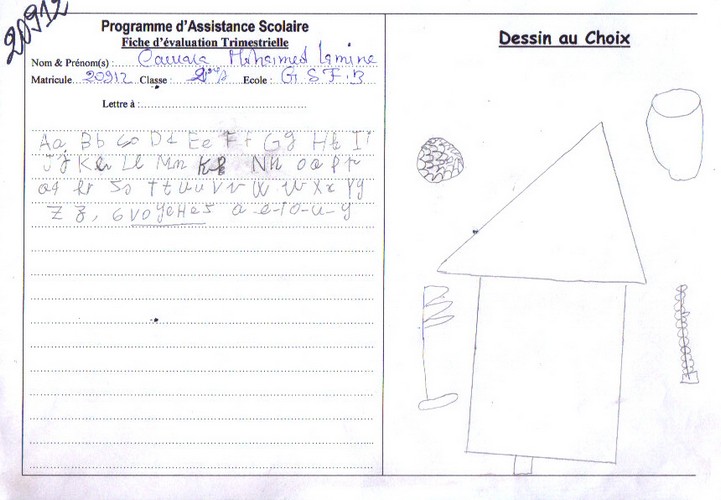 20912
Programme d'Assistance Scolaire
Fiche d'évaluation Trimestrielle
Nom & Prénom(s) : Camara Mohamed Lamine
Matricule 20912 Classe : Ecole : G.S.F.B
Lettre à :
Aa Bb Dd Ee Ff Gg Hh Ii
Jj Kk Ll Mm Nn oo Pp
Rr Ss Tt uu Vv W w Xx Yy
Z z, 6 voyelles a-e-i-o-u-y
Dessin au Choix